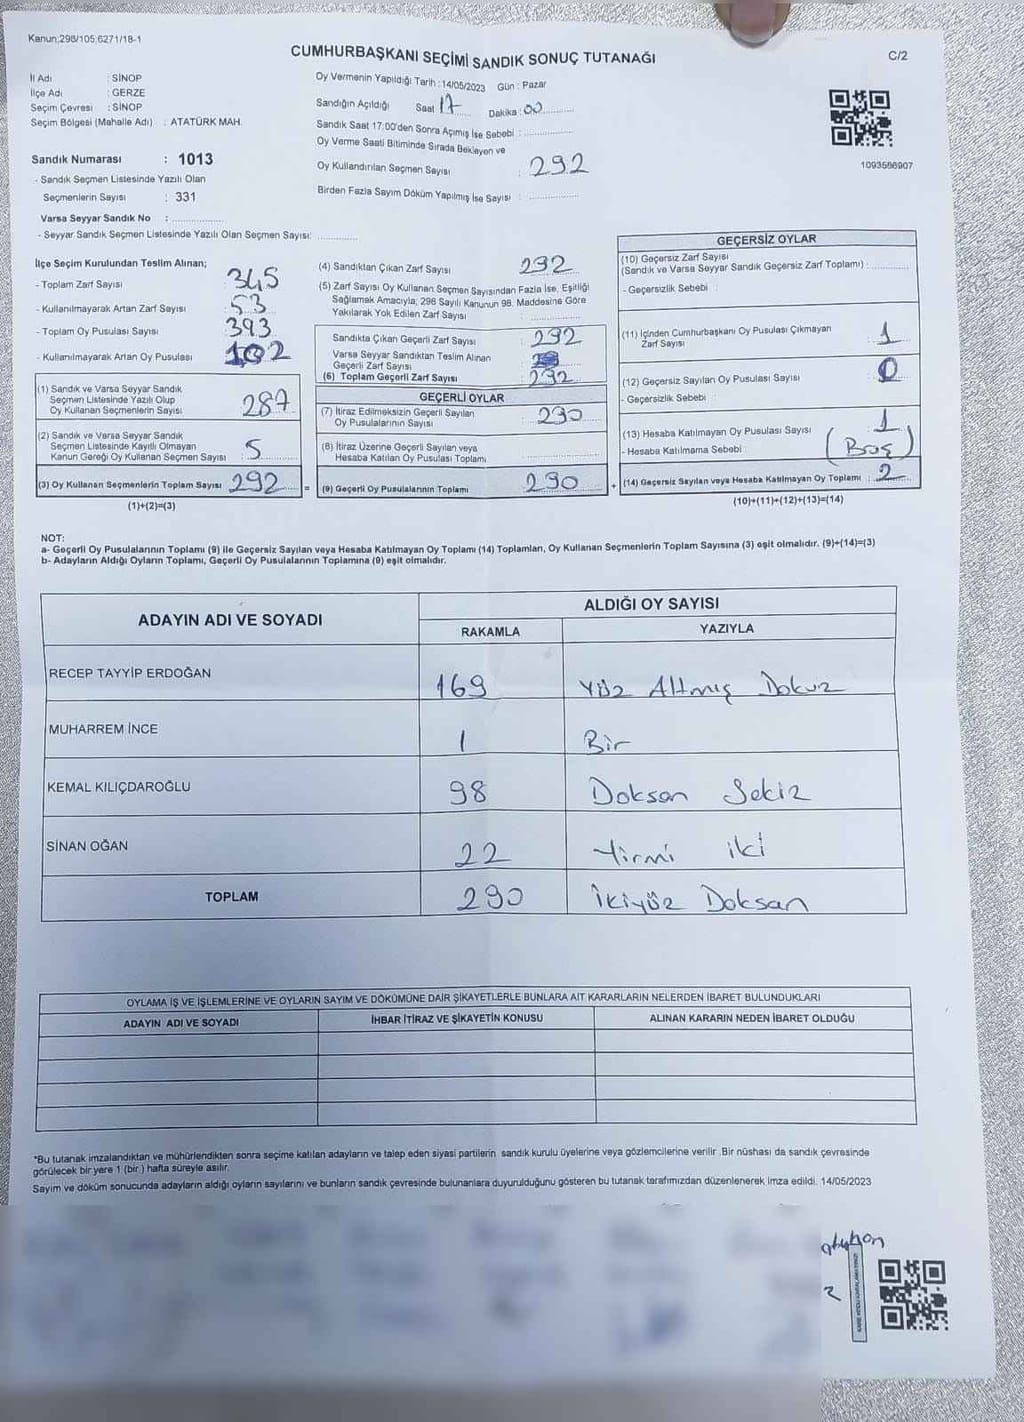 Kanun;298/105;6271/18-1
CUMHURBAŞKANI SEÇİMİ SANDIK SONUÇ TUTANAĞI
C/2
İl Adı : SİNOP
İlçe Adı : GERZE
Seçim Çevresi : SİNOP
Seçim Bölgesi (Mahalle Adı) : ATATÜRK MAH.
Oy Vermenin Yapıldığı Tarih : 14/05/2023 Gün : Pazar
Sandığın Açıldığı Saat 17 Dakika : 00
Sandık Saat 17:00'den Sonra Açımış İse Sebebi :
Oy Verme Saati Bitiminde Sırada Bekleyen ve
Oy Kullandırılan Seçmen Sayısı : 292
Birden Fazla Sayım Döküm Yapılmış İse Sayısı :
1093566907
Sandık Numarası : 1013
- Sandık Seçmen Listesinde Yazılı Olan
Seçmenlerin Sayısı : 331
Varsa Seyyar Sandık No :
- Seyyar Sandık Seçmen Listesinde Yazılı Olan Seçmen Sayısı:
İlçe Seçim Kurulundan Teslim Alınan;
- Toplam Zarf Sayısı 345
- Kullanılmayarak Artan Zarf Sayısı : 53
- Toplam Oy Pusulası Sayısı 393
- Kullanılmayarak Artan Oy Pusulası 102
(1) Sandık ve Varsa Seyyar Sandık
Seçmen Listesinde Yazılı Olup
Oy Kullanan Seçmenlerin Sayısı : 287
(2) Sandık ve Varsa Seyyar Sandık
Seçmen Listesinde Kayıtlı Olmayan
Kanun Gereği Oy Kullanan Seçmen Sayısı : 5
(3) Oy Kullanan Seçmenlerin Toplam Sayısı 292 =
(1)+(2)=(3)
(4) Sandıktan Çıkan Zarf Sayısı : 292
(5) Zarf Sayısı Oy Kullanan Seçmen Sayısından Fazla İse, Eşitliği
Sağlamak Amacıyla; 298 Sayılı Kanunun 98. Maddesine Göre
Yakılarak Yok Edilen Zarf Sayısı :
Sandıkta Çıkan Geçerli Zarf Sayısı : 292
Varsa Seyyar Sandıktan Teslim Alınan
Geçerli Zarf Sayısı
(6) Toplam Geçerli Zarf Sayısı : 292
GEÇERLİ OYLAR
(7) İtiraz Edilmeksizin Geçerli Sayılan
Oy Pusulalarının Sayısı : 290
(8) İtiraz Üzerine Geçerli Sayılan veya
Hesaba Katılan Oy Pusulası Toplamı
(9) Geçerli Oy Pusulalarının Toplamı : 290 +
GEÇERSİZ OYLAR
(10) Geçersiz Zarf Sayısı
(Sandık ve Varsa Seyyar Sandık Geçersiz Zarf Toplamı) :
- Geçersizlik Sebebi :
(11) İçinden Cumhurbaşkanı Oy Pusulası Çıkmayan
Zarf Sayısı : 1
(12) Geçersiz Sayılan Oy Pusulası Sayısı : 0
- Geçersizlik Sebebi :
(13) Hesaba Katılmayan Oy Pusulası Sayısı : 1
- Hesaba Katılmama Sebebi : (Boş)
(14) Geçersiz Sayılan veya Hesaba Katılmayan Oy Toplamı : 2
(10)+(11)+(12)+(13)=(14)
NOT:
a- Geçerli Oy Pusulalarının Toplamı (9) ile Geçersiz Sayılan veya Hesaba Katılmayan Oy Toplamı (14) Toplamları, Oy Kullanan Seçmenlerin Toplam Sayısına (3) eşit olmalıdır. (9)+(14)=(3)
b- Adayların Aldığı Oyların Toplamı, Geçerli Oy Pusulalarının Toplamına (9) eşit olmalıdır.
ADAYIN ADI VE SOYADI ALDIĞI OY SAYISI
RAKAMLA YAZIYLA
RECEP TAYYİP ERDOĞAN 169 Yüz Altmış Dokuz
MUHARREM İNCE 1 Bir
KEMAL KILIÇDAROĞLU 98 Doksan Sekiz
SİNAN OĞAN 22 Yirmi iki
TOPLAM 290 İkiyüz Doksan
OYLAMA İŞ VE İŞLEMLERİNE VE OYLARIN SAYIM VE DÖKÜMÜNE DAİR ŞİKAYETLERLE BUNLARA AİT KARARLARIN NELERDEN İBARET BULUNDUKLARI
ADAYIN ADI VE SOYADI İHBAR İTİRAZ VE ŞİKAYETİN KONUSU ALINAN KARARIN NEDEN İBARET OLDUĞU
*Bu tutanak imzalandıktan ve mühürlendikten sonra seçime katılan adayların ve talep eden siyasi partilerin sandık kurulu üyelerine veya gözlemcilerine verilir .Bir nüshası da sandık çevresinde
görülecek bir yere 1 (bir ) hafta süreyle asılır.
Sayım ve döküm sonucunda adayların aldığı oyların sayılarını ve bunların sandık çevresinde bulunanlara duyurulduğunu gösteren bu tutanak tarafımızdan düzenlenerek imza edildi. 14/05/2023